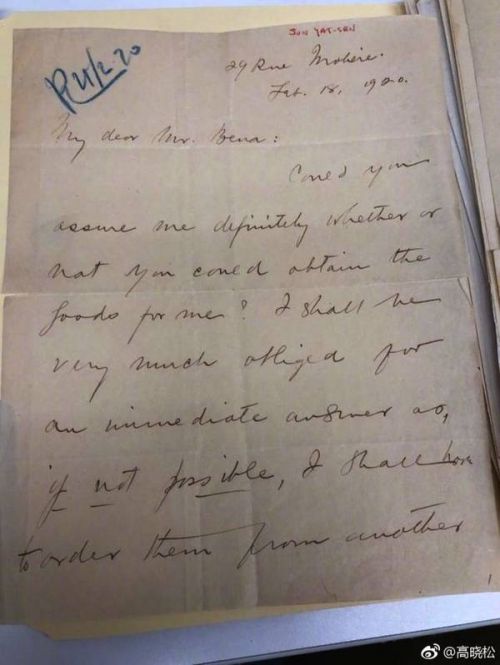 SUN YAT-SEN
R 21/2.20
29 Rue Moliere.
Feb. 18, 1920.
My dear Mr. Bena:
Could you
assure me definitely whether or
not you could obtain the
goods for me? I shall be
very much obliged for
an immediate answer as,
if not possible, I shall have
to order them from another
@高晓松